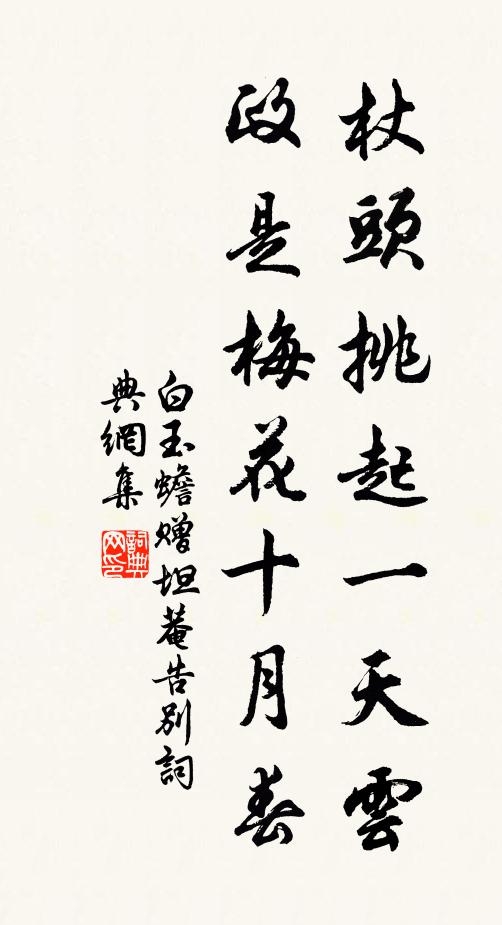 杖頭挑起一天雲
政是梅花十月春
白玉蟾贈坦菴告別詞
典網集
詞典网印